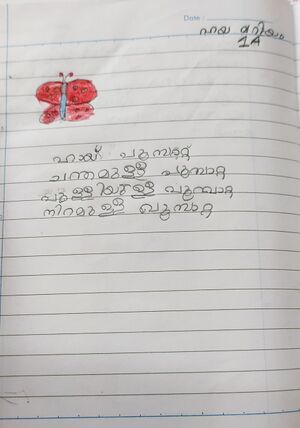 Date :
ഹയ മറിയം
1A
ഹായ് പൂമ്പാറ്റ
ചന്തമുള്ള പൂമ്പാറ്റ
പുള്ളിയുള്ള പൂമ്പാറ്റ
നിറമുള്ള പൂമ്പാറ്റ